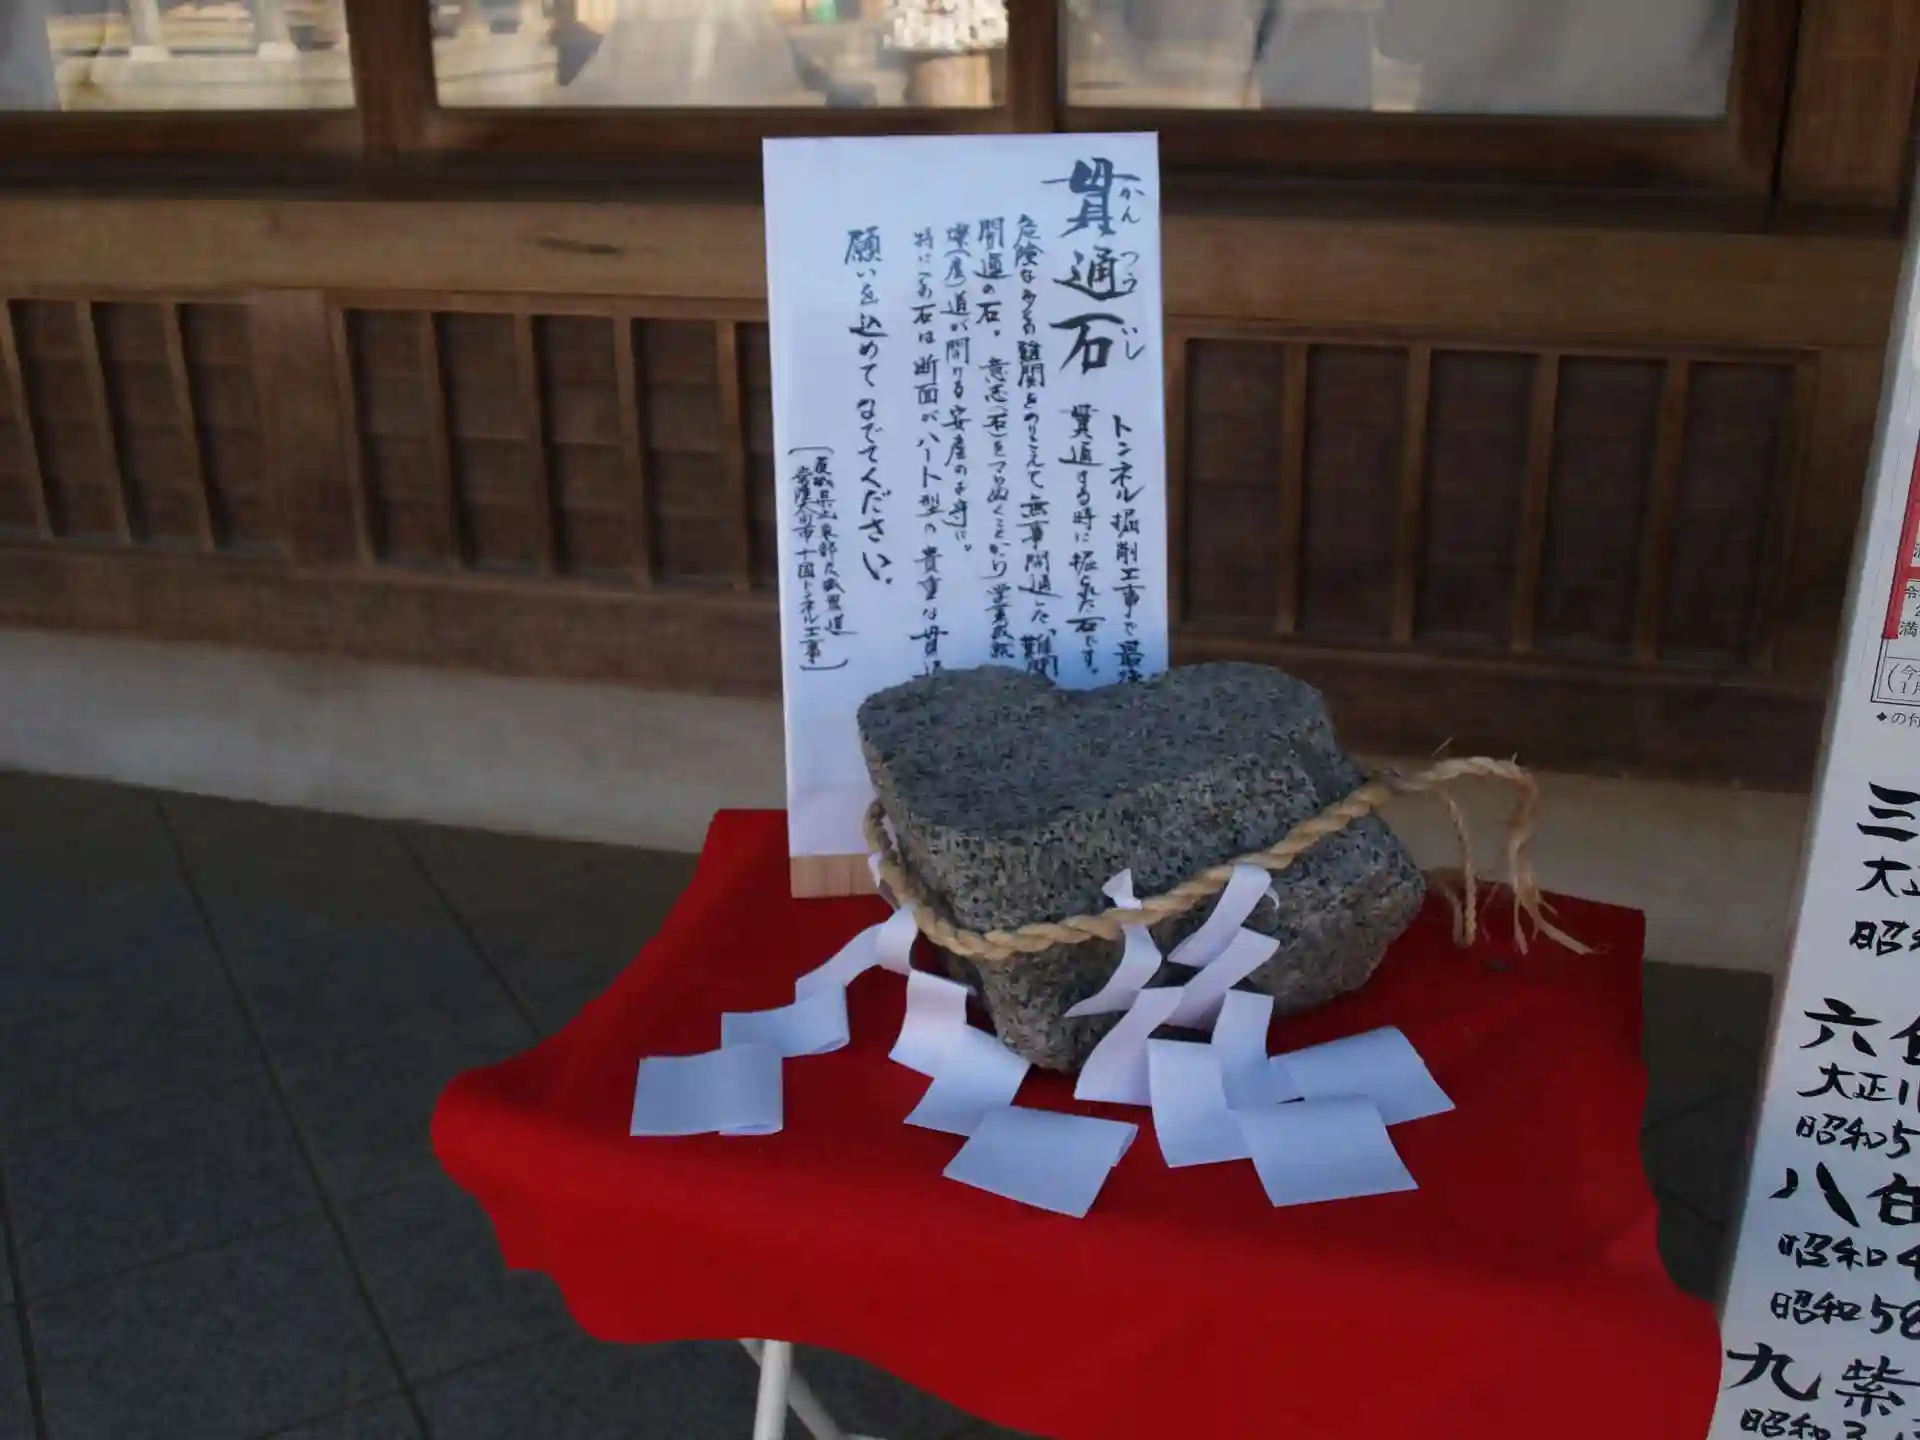 貫通石
かんつういし
トンネル掘削工事で最後
貫通する時に掘られた石です。
危険な多の難関をのりこえて無事開通した「難関
開通の石。意志(石)をつらぬくことから学業成就
壊(産)道が開ける安産のお守に。
特にこの石は断面がハート型の貴重な貫通
願いを込めてなでてください。
十国トンネル工事
三
大正
昭
六白
大正11
昭和5
八白
昭和4
昭和58
九紫
昭和3
令
満
の付